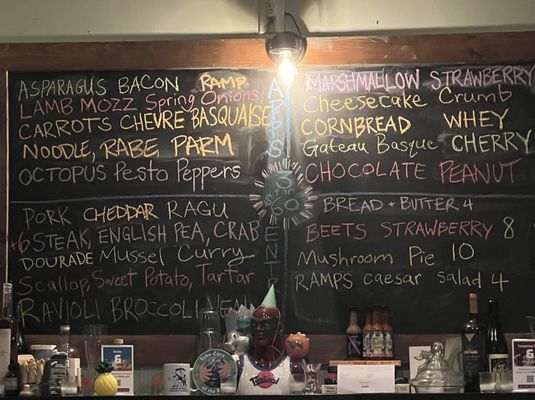 ASPARAGUS BACON RAMP
LAMB MOZZ Spring Onions
CARROTS CHEVRE BASQUAISE
NOODLE, RABE, PARM
OCTOPUS Pesto Peppers
APPS
3 for 60
MARSHMALLOW STRAWBERRY
Cheesecake Crumb
CORNBREAD WHEY
Gateau Basque CHERRY
CHOCOLATE PEANUT
PORK CHEDDAR RAGU
+6 STEAK, ENGLISH PEA, CRAB
DOURADE Mussel Curry
Scallop, Sweet Potato, Tartar
RAVIOLI BROCCOLINI
BREAD + BUTTER 4
BEETS STRAWBERRY 8
Mushroom Pie 10
RAMPS caesar salad 4